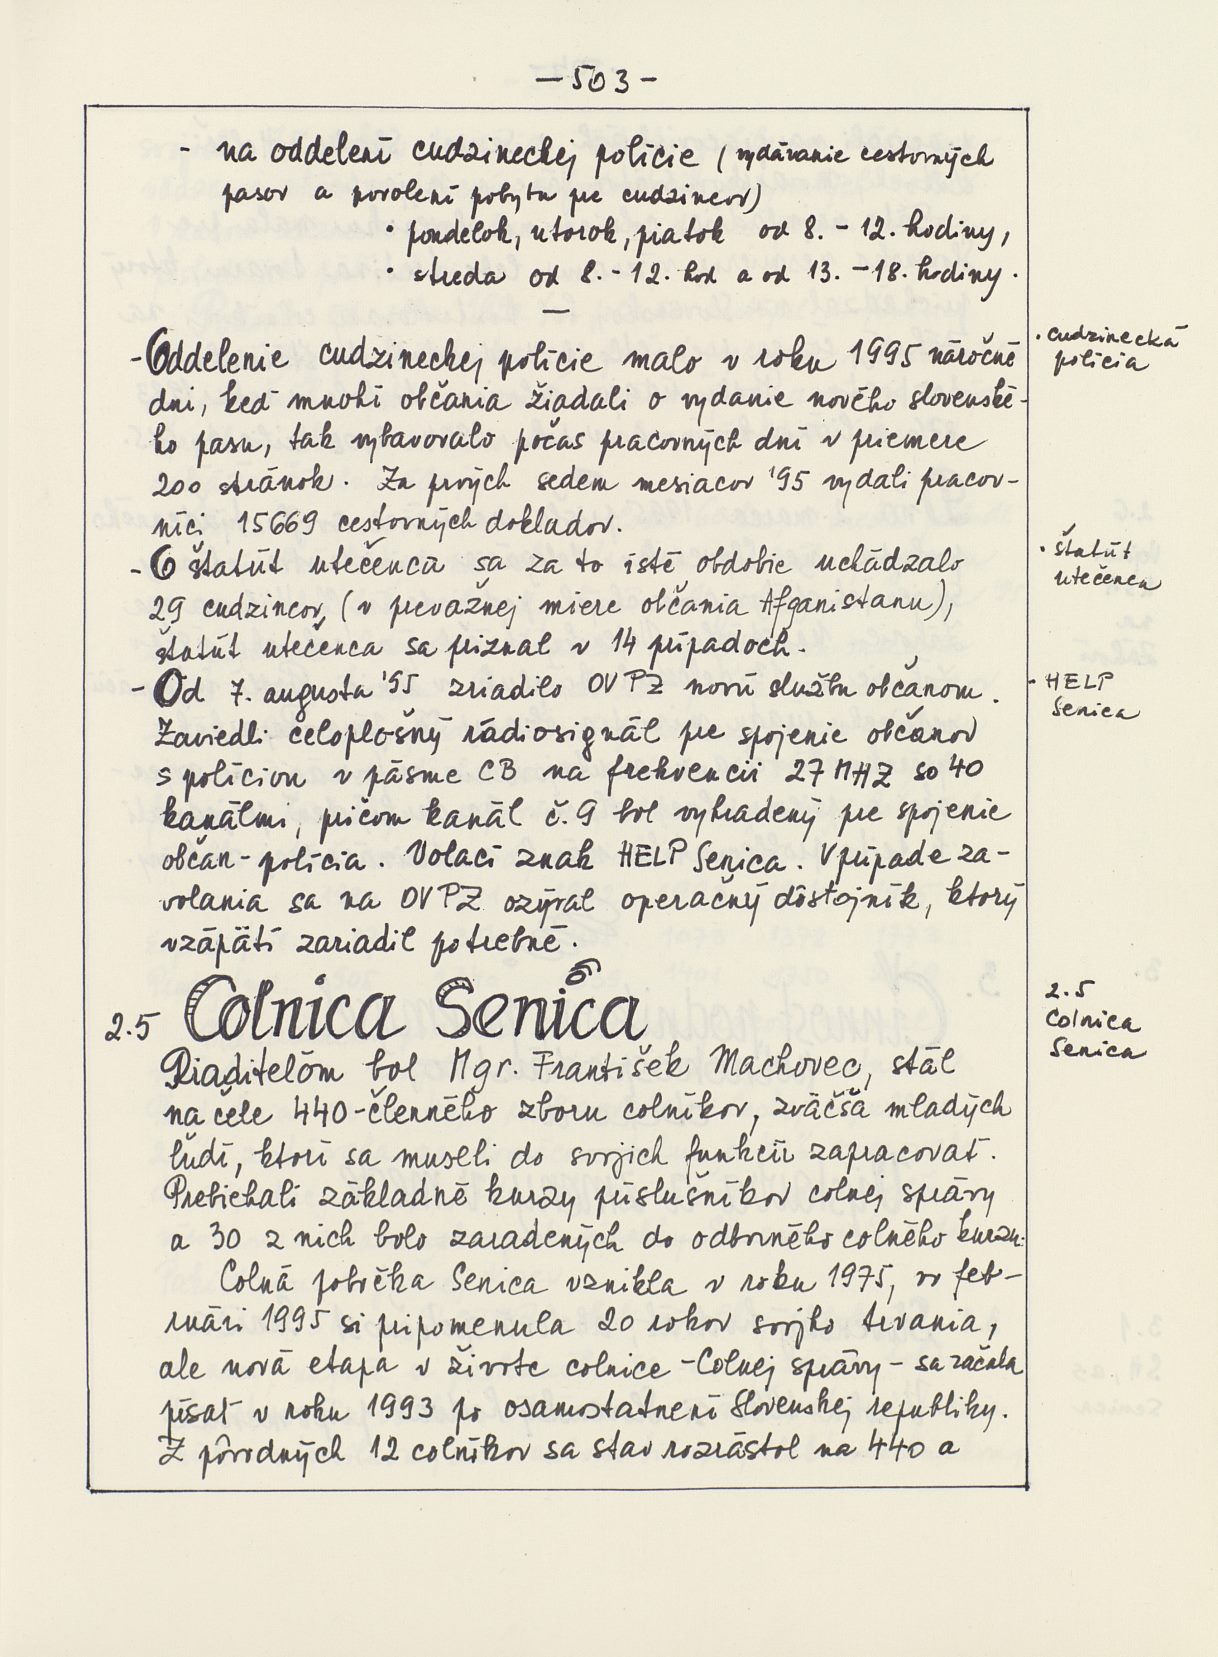 — 503 —
- na oddelení cudzineckej polície (vydávanie cestovných
pasov a povolení pobytu pre cudzincov)
• pondelok, utorok, piatok od 8. - 12. hodiny,
• streda od 8. - 12. hod a od 13. - 18. hodiny.
—
- Oddelenie cudzineckej polície malo v roku 1995 náročné
dni, keď mnohí občania žiadali o vydanie nového slovenské-
ho pasu, tak vybavovalo počas pracovných dní v priemere
200 stránok. Za prvých sedem mesiacov '95 vydali pracov-
níci 15669 cestovných dokladov.
- O štatút utečenca sa za to isté obdobie uchádzalo
29 cudzincov, (v prevažnej miere občania Afganistanu),
štatút utečenca sa priznal v 14 prípadoch.
- Od 7. augusta '95 zriadilo OVPZ novú službu občanom.
Zaviedli celoplošný rádiosignál pre spojenie občanov
s políciou v pásme CB na frekvencii 27 MHZ so 40
kanálmi, pričom kanál č. 9 bol vyhradený pre spojenie
občan - polícia. Volací znak HELP Senica. V prípade za-
volania sa na OVPZ ozýval operačný dôstojník, ktorý
vzápätí zariadil potrebné.
2.5 Colnica Senica
Riaditeľom bol Mgr. František Machovec, stál
na čele 440-členného zboru colníkov, zväčša mladých
ľudí, ktorí sa museli do svojich funkcií zapracovať.
Prebiehali základné kurzy príslušníkov colnej správy
a 30 z nich bolo zaradených do odborného colného kurzu.
Colná pobočka Senica vznikla v roku 1975, vo feb-
ruári 1995 si pripomenula 20 rokov svojho trvania,
ale nová etapa v živote colnice - Colnej správy - sa začala
písať v roku 1993 po osamostatnení Slovenskej republiky.
Z pôvodných 12 colníkov sa stav rozrástol na 440 a
• cudzinecká
polícia
• štatút
utečenca
- HELP
Senica
2.5
Colnica
Senica